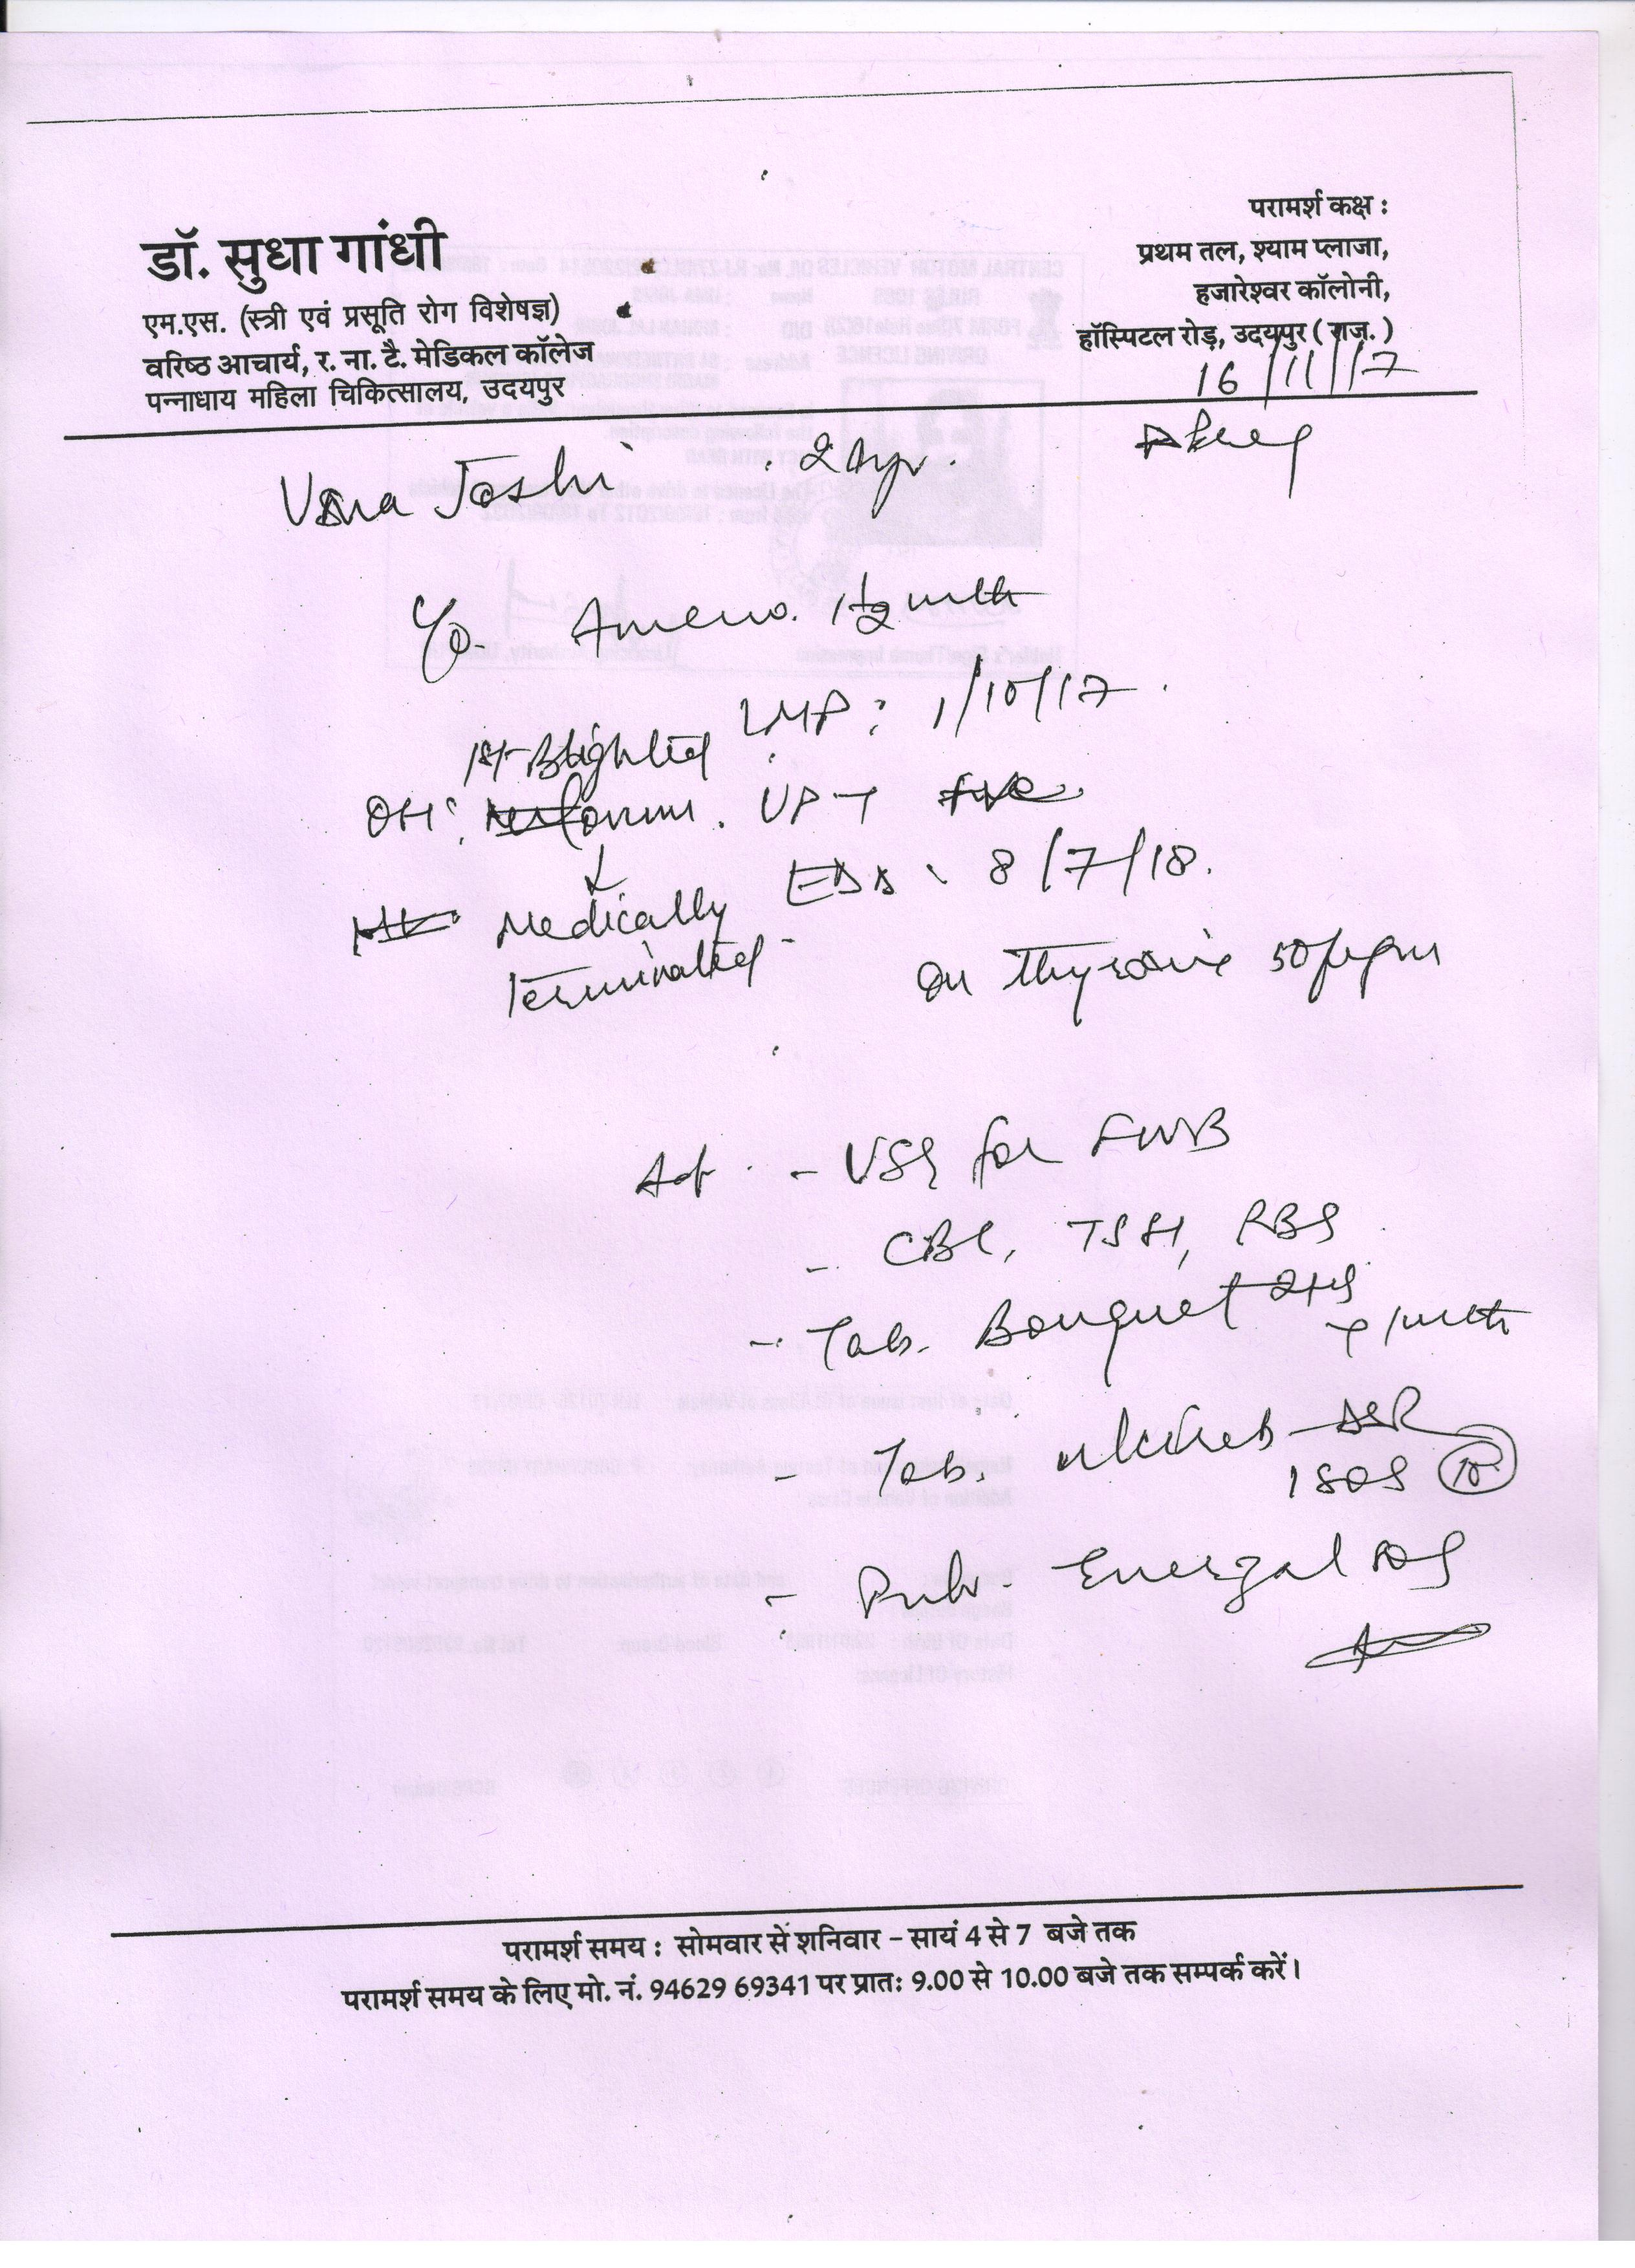 डॉ. सुधा गांधी
एम.एस. (स्त्री एवं प्रसूति रोग विशेषज्ञ)
वरिष्ठ आचार्य, र. ना. टै. मेडिकल कॉलेज
पन्नाधाय महिला चिकित्सालय, उदयपुर
परामर्श कक्ष :
प्रथम तल, श्याम प्लाजा,
हजारेश्वर कॉलोनी,
हॉस्पिटल रोड़, उदयपुर ( राज. )
16/11/17
Joshi
C/o. Ameno. 1 1/2 mth
LMP : 1/10/17.
1st Blighted
OH: ovum. UPT +ve
EDD : 8/7/18.
Medically
Terminated
on Thyroxine 50 µgm
Ad. - USG for FWB
- CBC, TSH, RBS
- Tab. Bouquet
x 1 mth
- Tab. DSR
1 SOS 10
- Pulv. Energal
परामर्श समय : सोमवार से शनिवार – सायं 4 से 7 बजे तक
परामर्श समय के लिए मो. नं. 94629 69341 पर प्रातः 9.00 से 10.00 बजे तक सम्पर्क करें।